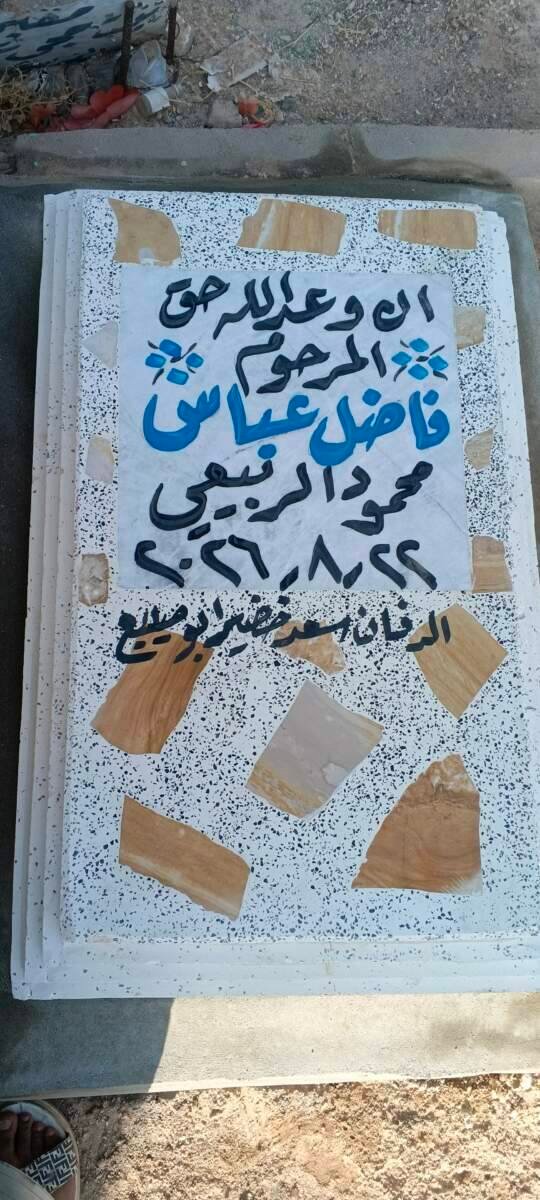 ان وعد الله حق
المرحوم
فاضل عباس
محمود الربيعي
٢٠٢٦٫٨٫٢٢
الدفان اسعد خضير ابو